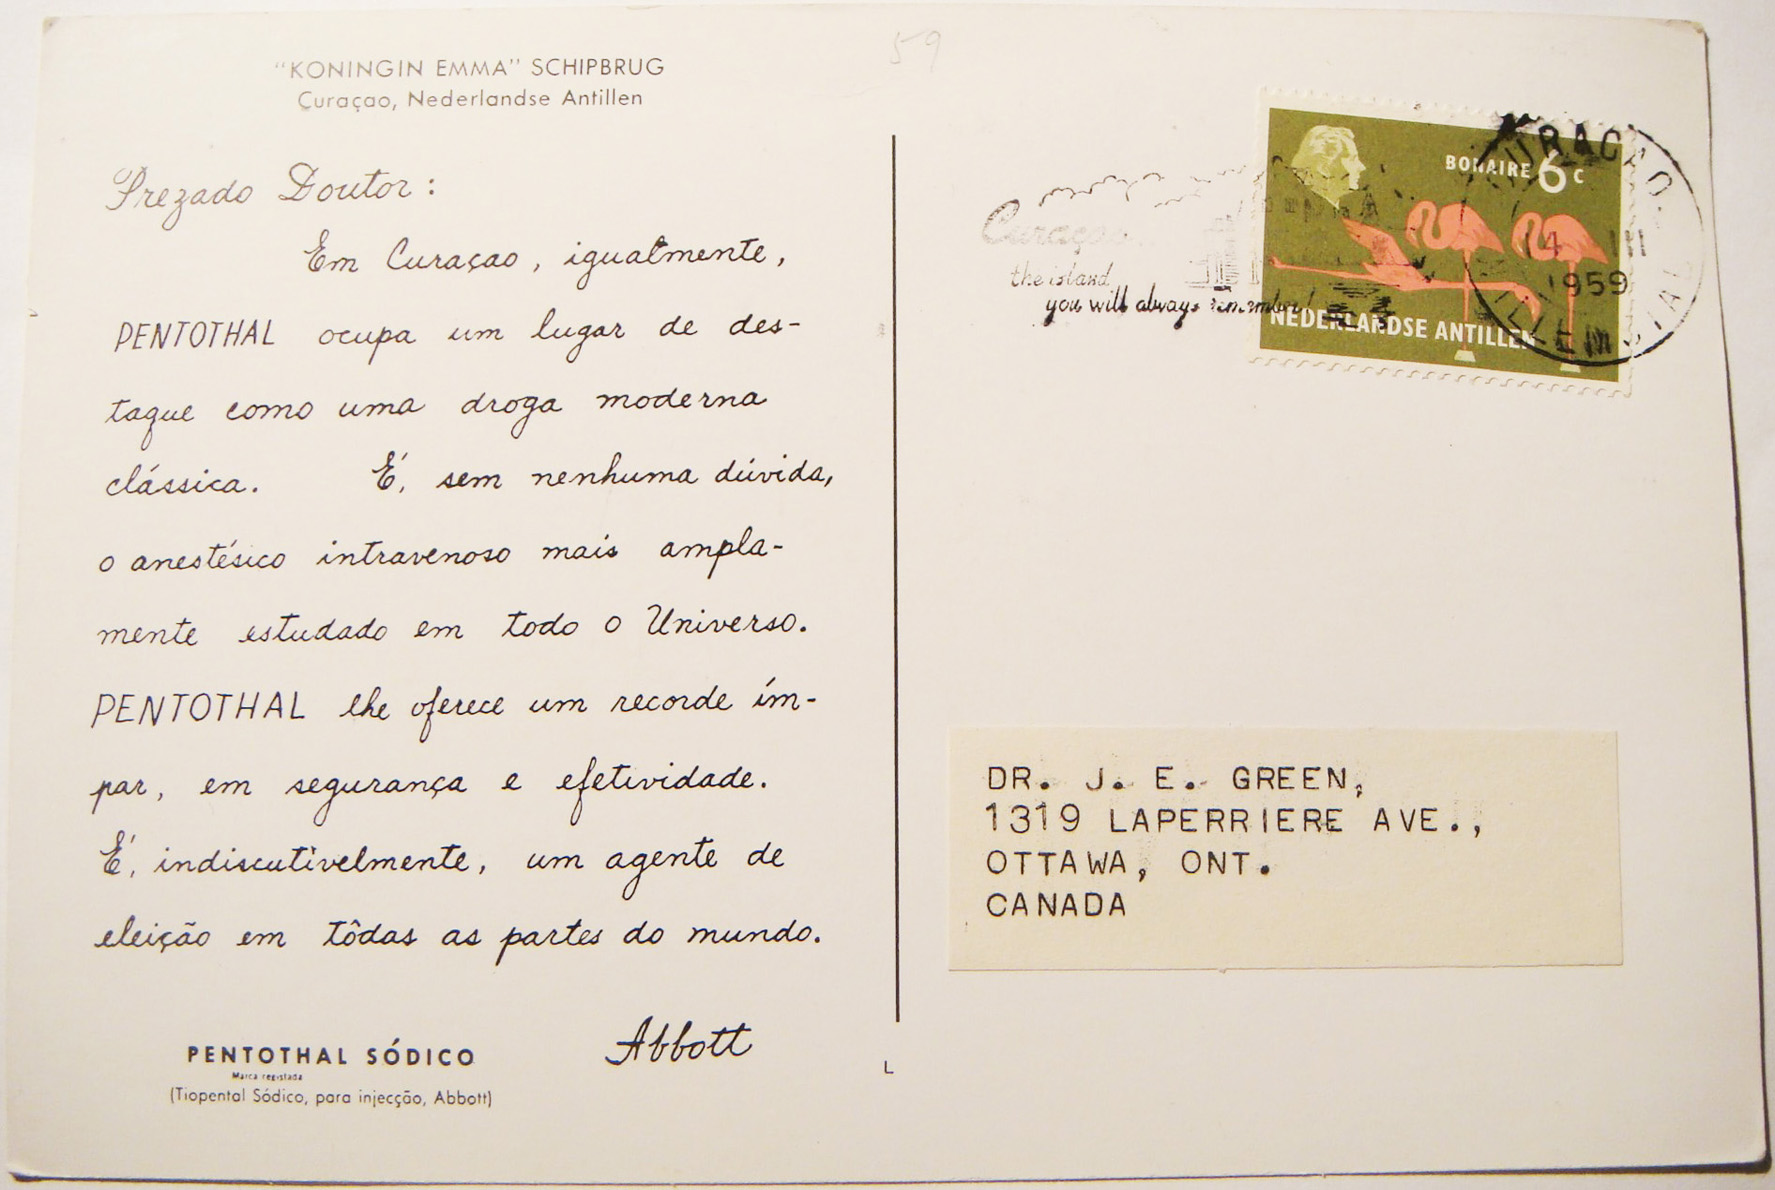 "KONINGIN EMMA" SCHIPBRUG
Curaçao, Nederlandse Antillen
59
Prezado Doutor:
Em Curaçao, igualmente,
PENTOTHAL ocupa um lugar de des-
taque como uma droga moderna
clássica. É, sem nenhuma dúvida,
o anestésico intravenoso mais ampla-
mente estudado em todo o Universo.
PENTOTHAL lhe oferece um recorde ím-
par, em segurança e efetividade.
É, indiscutivelmente, um agente de
eleição em tôdas as partes do mundo.
Abbott
PENTOTHAL SÓDICO
Marca registada
(Tiopental Sódico, para injecção, Abbott)
L
Curaçao...
the island
you will always remember!
BONAIRE 6 C
NEDERLANDSE ANTILLEN
CURAÇAO
1959
WILLEMSTAD
DR. J. E. GREEN,
1319 LAPERRIERE AVE.,
OTTAWA, ONT.
CANADA